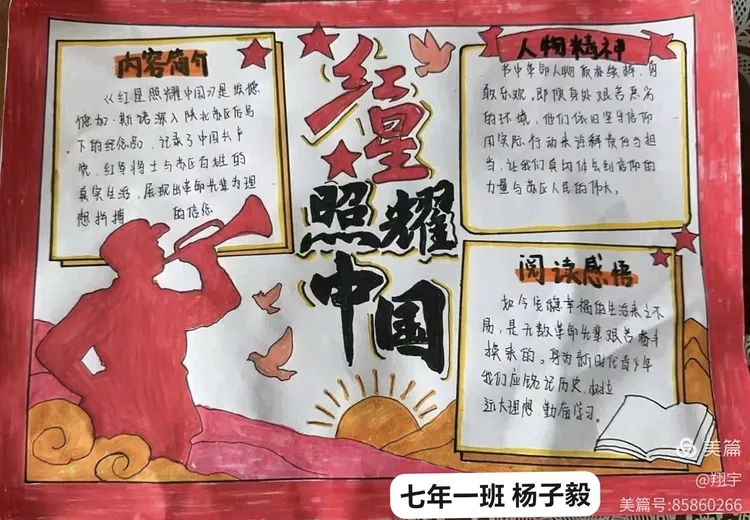 内容简介
《红星照耀中国》是埃德
加·斯诺深入陕北苏区后写
下的纪念品,记录了中国共产
党、红军将士与苏区百姓的
真实生活,展现出革命先辈为理
想拼搏 的信念
红星
照耀
中国
人物精神
书中革命人物 勇
敢乐观。即便身处艰苦恶劣
的环境,他们依旧坚守信仰
用实际行动来诠释责任与担
当,让我们真切体会到信仰的
力量与苏区人民的伟大。
阅读感悟
如今安稳幸福的生活来之不
易,是无数革命先辈艰苦奋斗
换来的。身为新时代青少年
我们应铭记历史,树立
远大理想,勤奋学习。
七年一班 杨子毅
美篇
@翔宇
美篇号:85860266